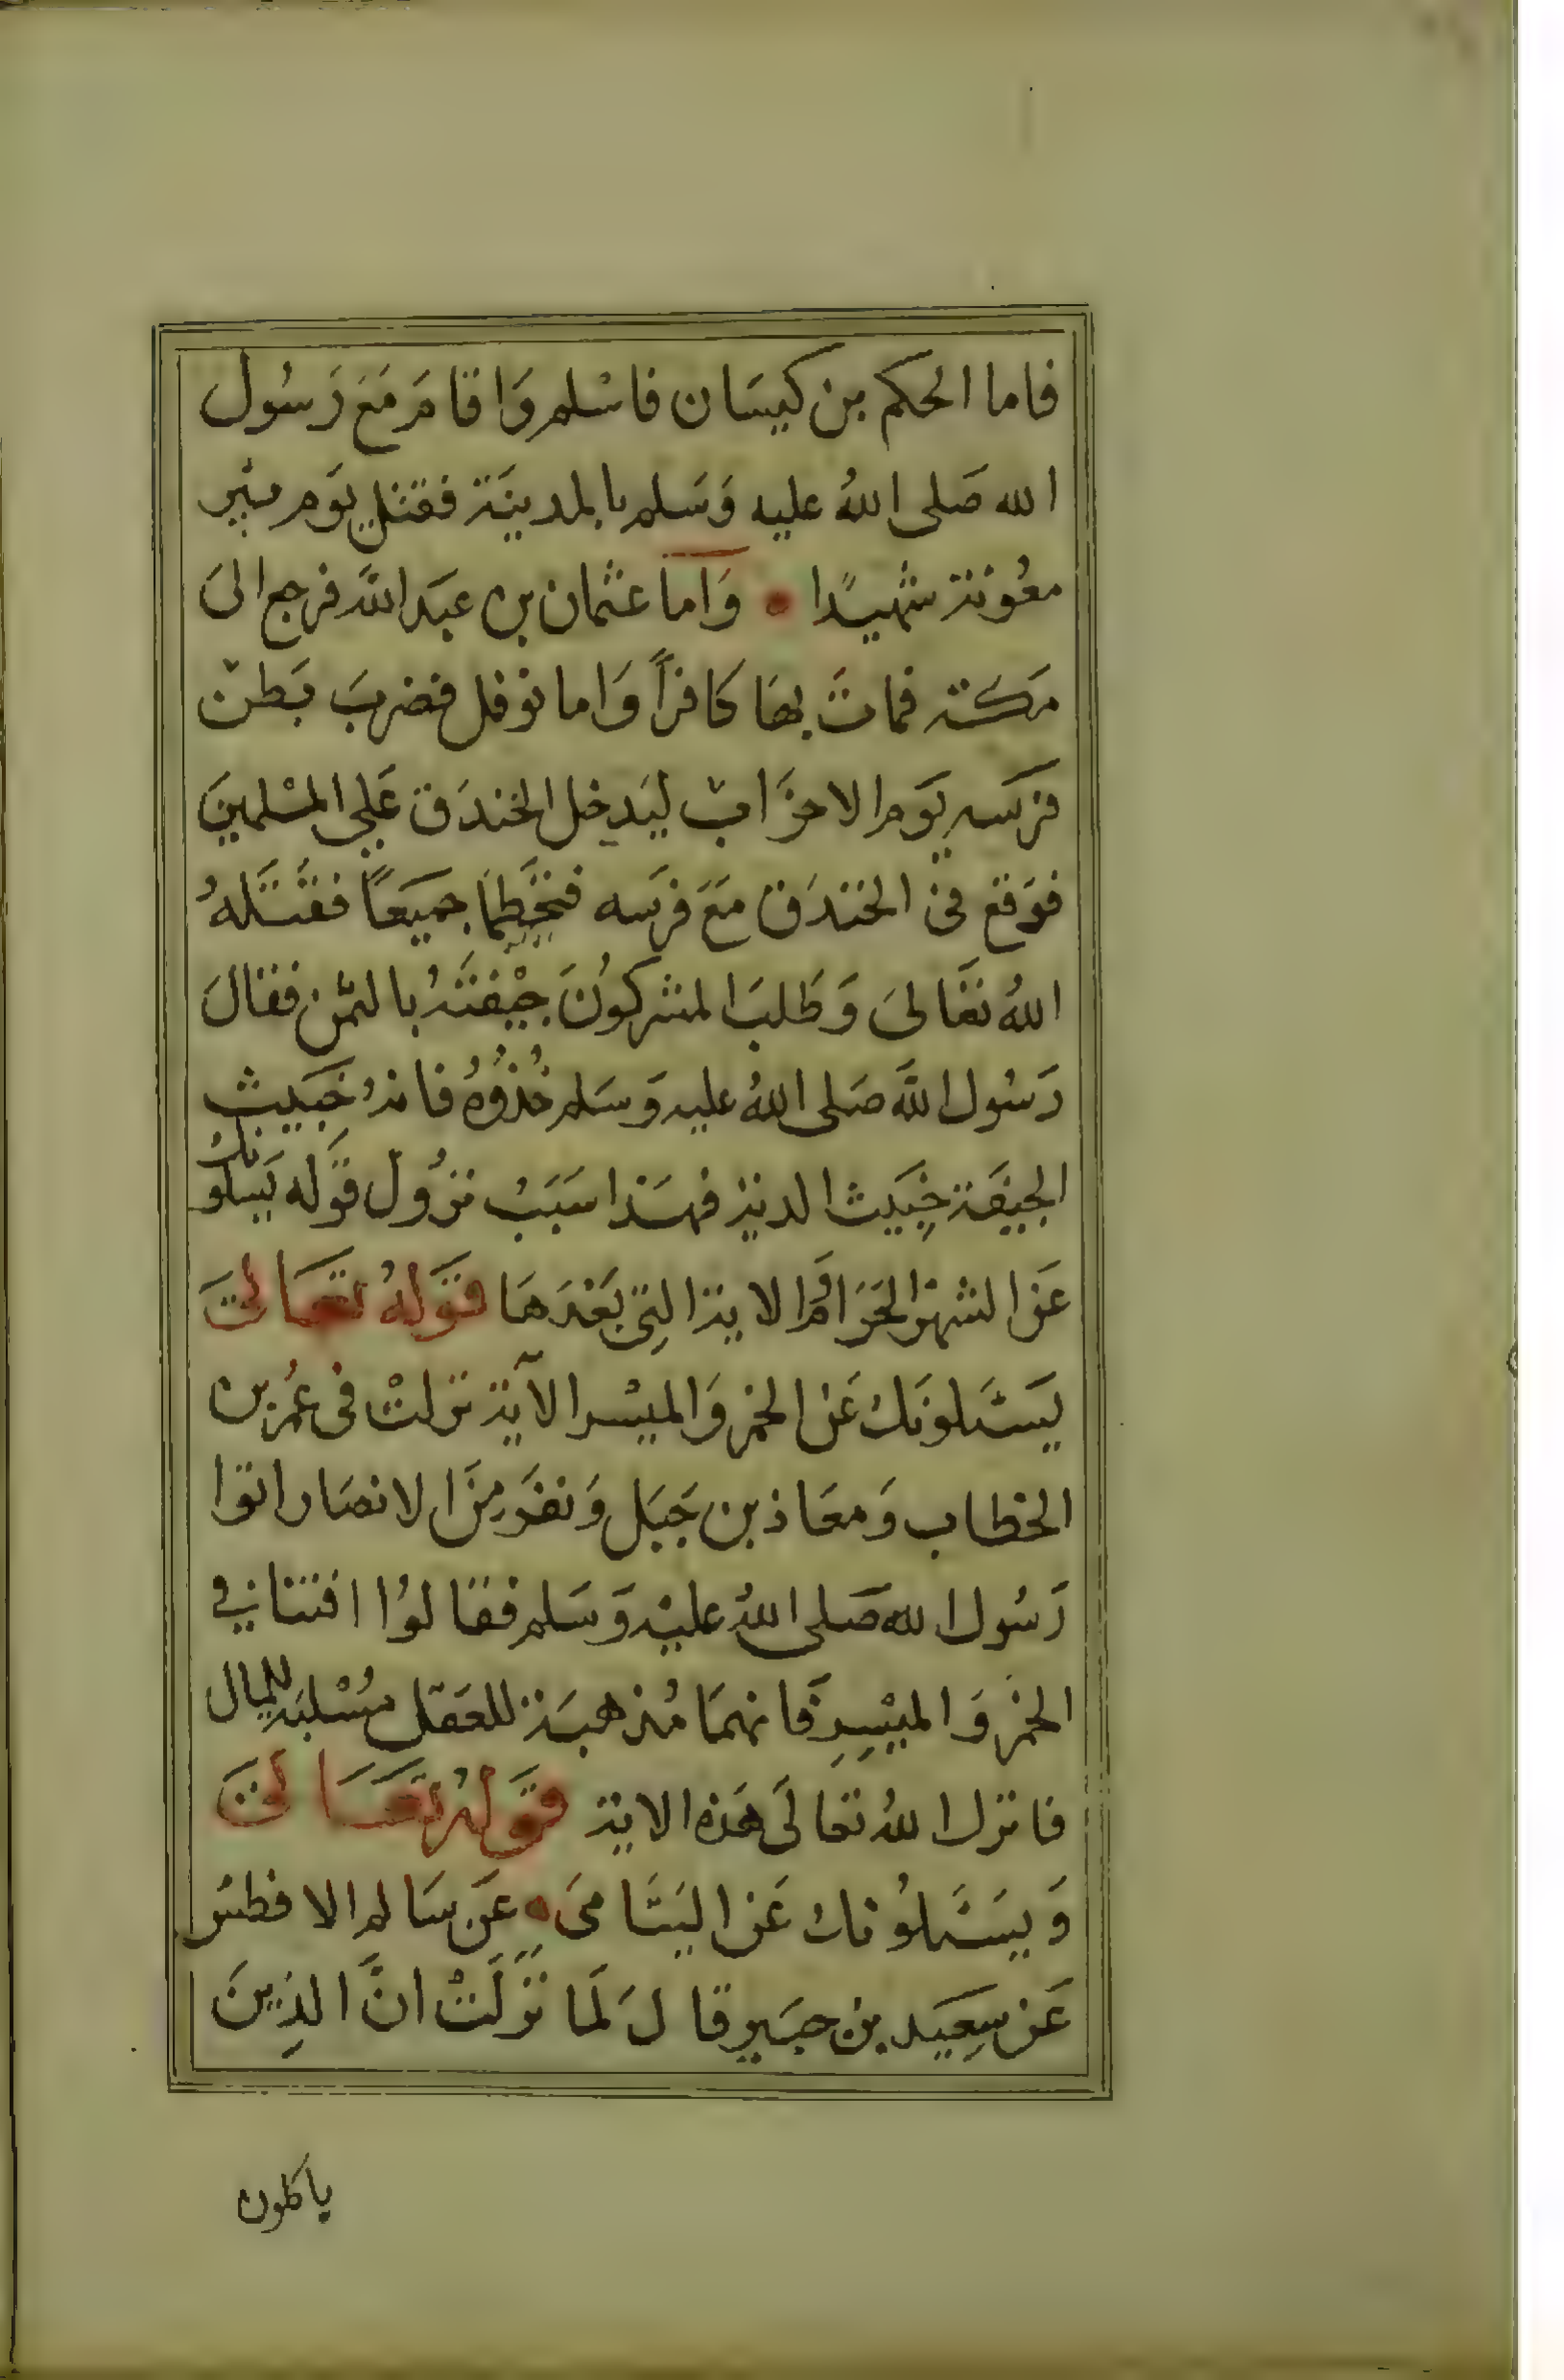 فاما الحكم بن كيسَان فاسْلم وَاقامَ مَعَ رَسُول
الله صَلى اللهُ عليه وَسَلم بالمدينَة فقتل يوَم بئير
معُونة شهيدًا • وَاما عثمان بن عبَد اللَّه فرجع الىَ
مَكة فماتَ بهَا كافراً وَاما نوفل فضربَ بَطن
فرَسه يوَم الاحزَاب ليَدخل الخندَق عَلي المسْلمينَ
فوَقع في الخندَق مَعَ فرَسه فتحَطما جميَعاً فقتَلهُ
اللهُ تعَالىَ وَطَلبَ المشركوُنَ جيْفتهُ بالثمن فقالَ
رَسُول اللَّه صَلى اللهُ عليه وَسَلم خُذُوُهُ فانهُ خَبِيَث
الجيفَة خِبَيث الدية فهَذا سَبَبُ نزُول قوَله يَسلونك
عَن الشهر الحَرَام وَالاية التِي بَعْدَهَا قوَلهُ تعَالىَ
يسَئَلونَك عَن الخمر وَالميسْر الآية نزلتْ في عُمر بن
الخطاب وَمعَاذ بن جَبَل وَنفَر مِنَ الانصَار اتوا
رَسُول الله صَلى اللهُ عليْه وَسَلم فقالوُا افتنا في
الخمْر وَالميْسِرِ فَانهمَا مُذهبَة للعَقل مسُْلبَة للمال
فانزل اللهُ تعالىَ هَذه الاية قوَلهُ تعَالىَ
وَيسَئَلوُنك عَن اليَتَامىَ • عَن سَالم الافطسَ
عَن سِعَيد بن جبَير قالَ لَما نَزَلَتْ انَّ الذِينَ
ياكلون